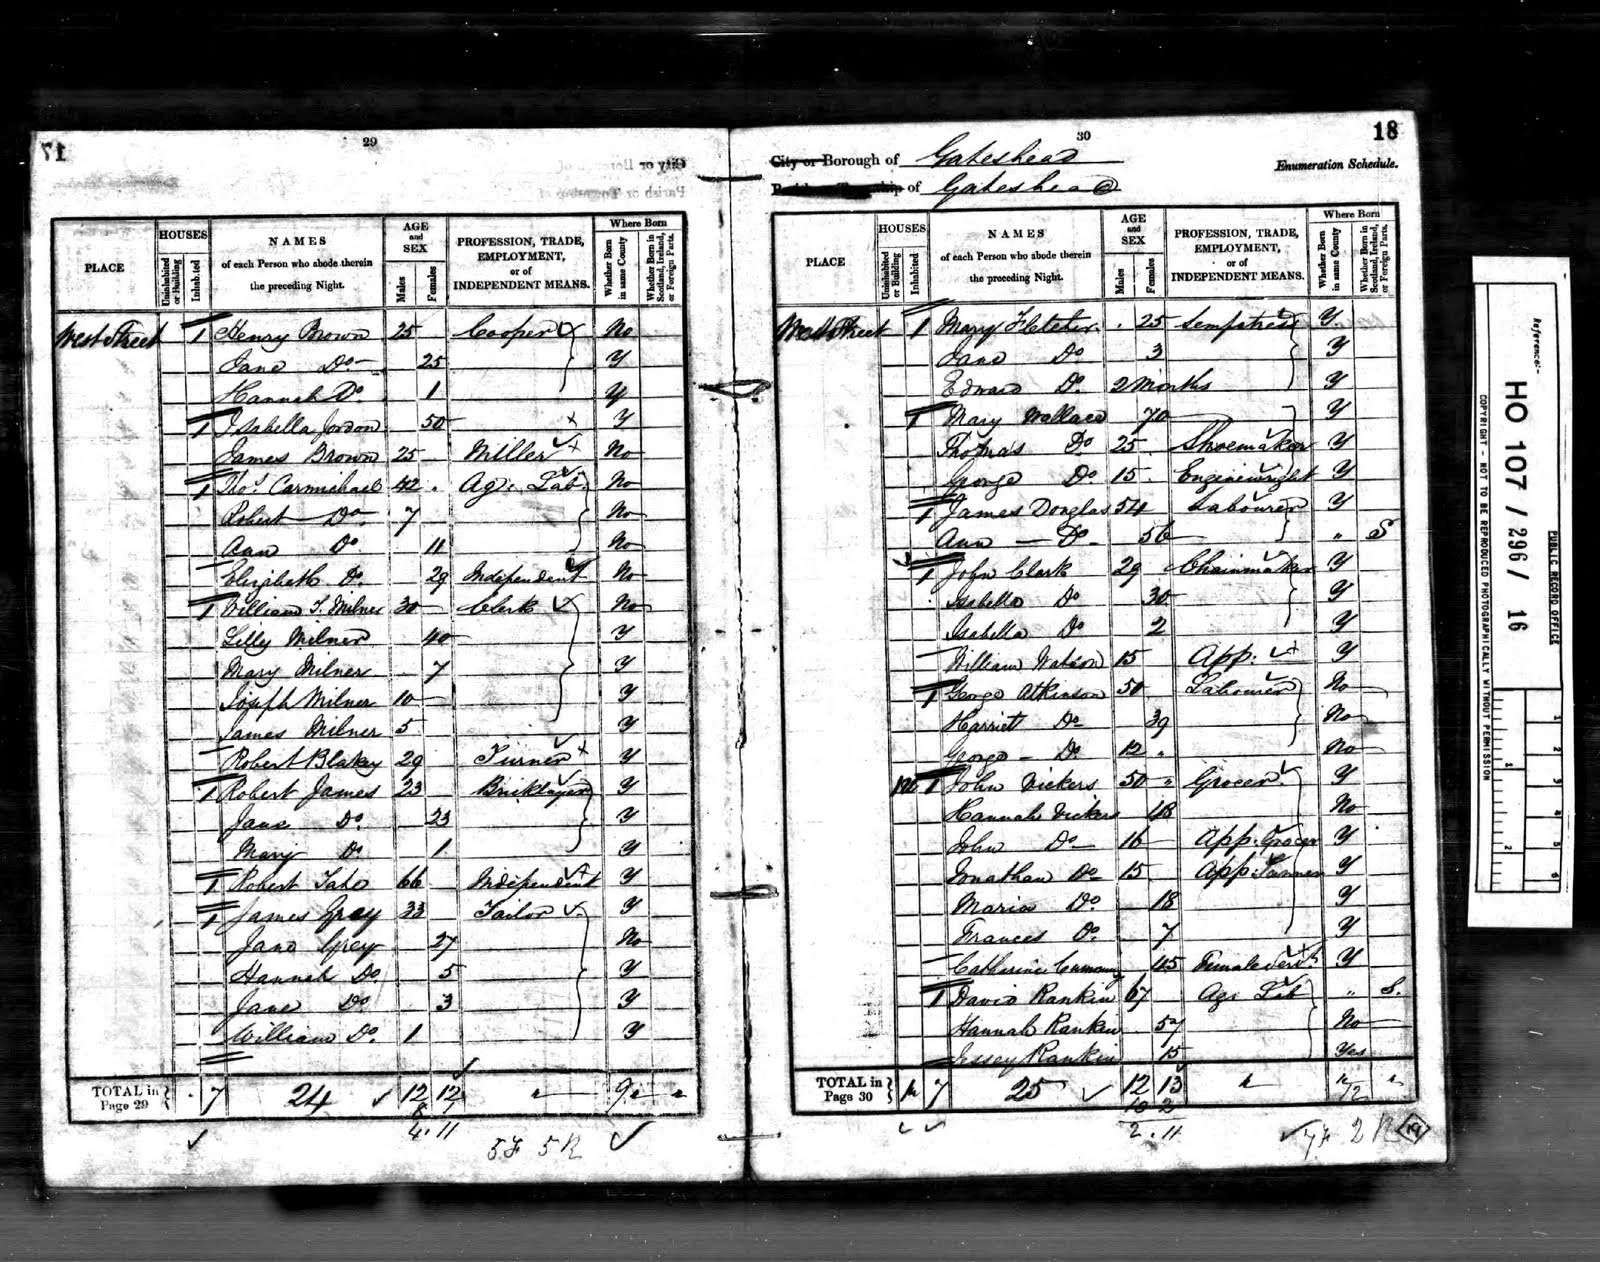 29
HOUSES
AGE and SEX
Where Born
PLACE
Uninhabited or Building
Inhabited
NAMES of each Person who abode therein the preceding Night.
Males
Females
PROFESSION, TRADE, EMPLOYMENT, or of INDEPENDENT MEANS.
Whether Born in same County
Whether Born in Scotland, Ireland, or Foreign Parts.
West Street 1 Henry Brown 25 Cooper No
Jane Do 25 Y
Hannah Do 1 Y
1 Isabella Jordon 50 Y
James Brown 25 Miller No
1 Thos. Carmichael 42 Ag. Lab. No
Robert Do 7 No
Ann Do 11 No
Elizabeth Do 29 Independent No
1 William T. Milner 30 Clerk No
Lilly Milner 40 Y
Mary Milner 7 Y
Joseph Milner 10 Y
James Milner 5 Y
Robert Blakey 29 Turner Y
1 Robert James 23 Bricklayer Y
Jane Do 23 Y
Mary Do 1 Y
1 Robert 66 Independent Y
1 James Grey 33 Tailor Y
Jane Grey 27 No
Hannah Do 5 Y
Jane Do 3 Y
William Do 1 Y
TOTAL in Page 29 7 24 12 12 9
8 1
4 . 11
5 F 5 N
30
18
City or Borough of Gateshead
Enumeration Schedule.
of Gateshead
HOUSES
AGE and SEX
Where Born
PLACE
Uninhabited or Building
Inhabited
NAMES of each Person who abode therein the preceding Night.
Males
Females
PROFESSION, TRADE, EMPLOYMENT, or of INDEPENDENT MEANS.
Whether Born in same County
Whether Born in Scotland, Ireland, or Foreign Parts.
West Street 1 Mary Fletcher 25 Sempstress Y
Jane Do 3 Y
Edward Do 2 Months Y
1 Mary Wallace 70 Y
Thomas Do 25 Shoemaker Y
George Do 15 Enginewright Y
1 James Douglas 54 Labourer Y
Ann Do 56 " S
1 John Clark 29 Chainmaker Y
Isabella Do 30 Y
Isabella Do 2 Y
William Watson 15 App. Y
1 George Atkinson 50 Labourer No
Harriet Do 39 No
George Do 12 No
1 John Vickers 50 Grocer Y
Hannah Vickers 48 No
John Do 16 App. Grocer Y
Jonathan Do 15 App. Tanner Y
Maria Do 18 Y
Frances Do 7 Y
Catharine 45 Female Servt Y
1 David Rankin 67 Ag. Lab " S.
Hannah Rankin 57 No
Jessey Rankin 15 Yes
TOTAL in Page 30 7 25 12 13
10 2
2 . 11
7 F 2 N 19
Reference:-
HO 107 / 296 / 16
PUBLIC RECORD OFFICE
COPYRIGHT - NOT TO BE REPRODUCED PHOTOGRAPHICALLY WITHOUT PERMISSION
1
2
3
4
5
6
1
2